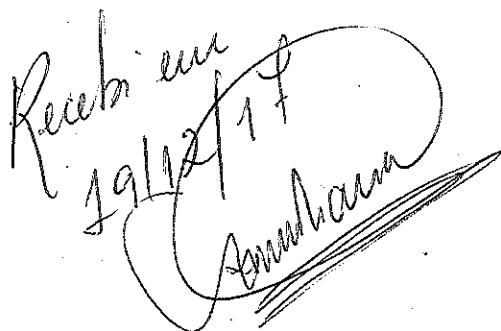 Recebi em
19/12/17